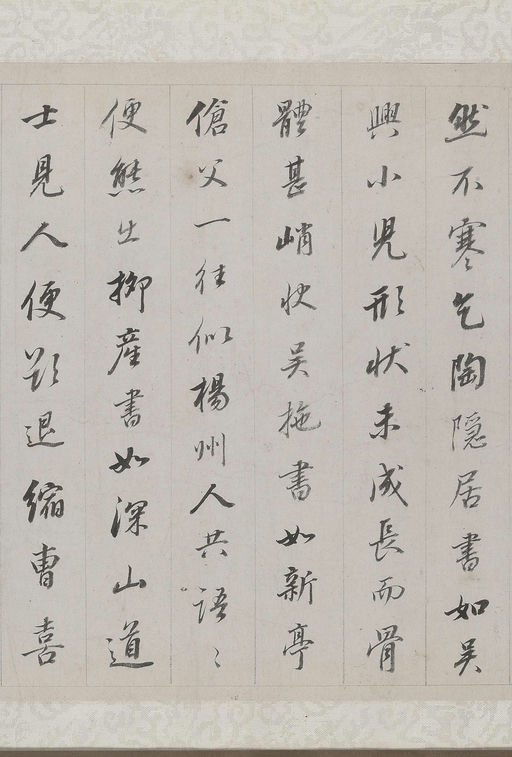 然不寒乞陶隱居書如吳
興小兒形狀未成長而骨
體甚峭快吴拖書如新亭
傖父一往似楊州人共語〻
便態出柳產書如深山道
士見人便欲退縮曹喜